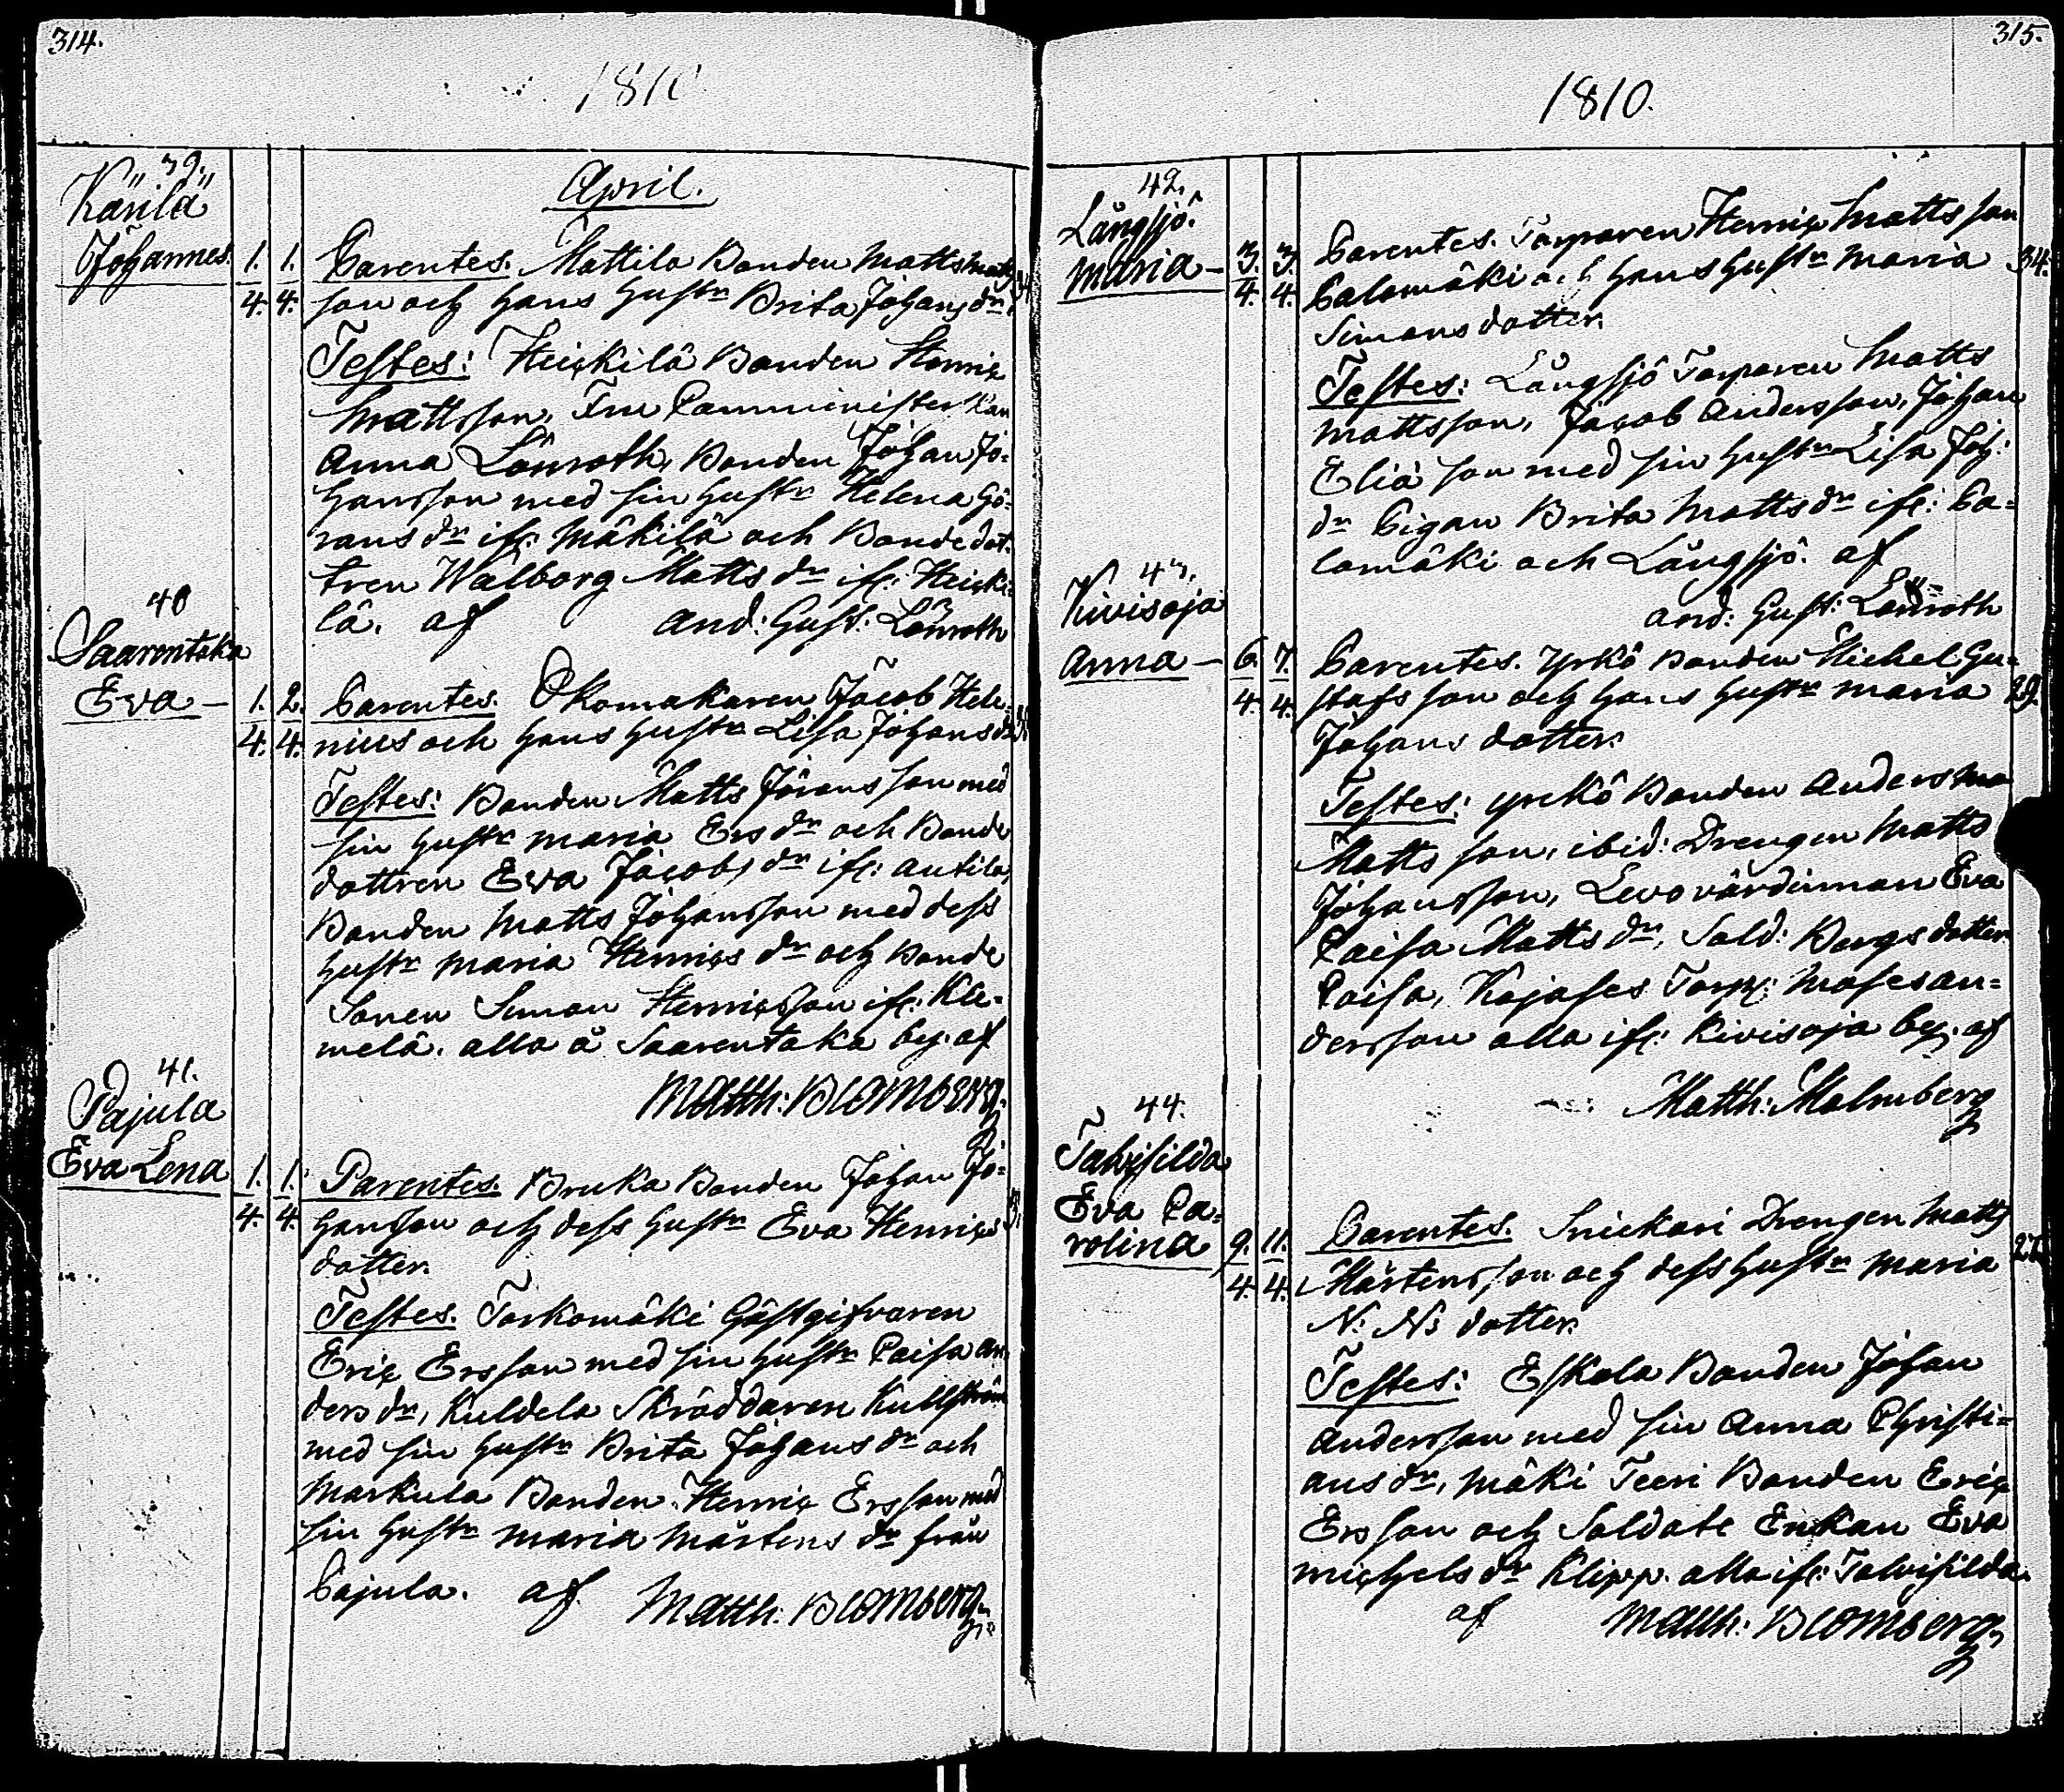 314.
1810
39.
Kärilä
Johannes.
1. 1.
4. 4.
April.
Parentes. Mattila Bonden Matts Matts
son och hans hustr Brita Johans dr
Testes: Heickilä Bonden Henric
Mattsson, Fru Camministerskan
Anna Lönroth, Bonden Johan Jo-
hansson med sin hustr Helena Gö-
rans dr ifr: Mäkilä och Bondedot-
tren Walborg Matts dr ifr: Heicki-
lä. af And: Gust: Lönroth
40
Saarentaka
Eva —
1. 2.
4. 4.
Parentes. Åkomakaren Jacob Hele-
nius och hans hustr Lisa Johans dr
Testes: Bonden Matts Jörans son med
sin hustr Maria Ers dr och Bonde
dottren Eva Jacobs dr ifr: Antila,
Bonden Matts Johansson med dess
hustr Maria Henrics dr och Bonde
Sonen Simon Henricsson ifr: Kle-
melä. alla å Saarentaka by. af
Matth: Blomberg.
41.
Pajula
Eva Lena
1. 1.
4. 4.
Parentes. Bruka Bonden Johan Jo-
hansson och dess hustr Eva Henrics
dotter.
Testes. Torkomäki Gästgifvaren
Eric Ersson med sin hustr Caisa An-
ders dr, Kuldela Skräddaren Kullström
med sin hustr Brita Johans dr och
Markula Bonden Henric Ersson med
sin hustr Maria Mårtens dr från
Pajula. af Matth: Blomberg.
315.
1810.
42.
Långsjö.
Maria —
3. 3.
4. 4.
Parentes. Torparen Henric Matts son
Palomäki och hans hustr Maria 34.
Simons dotter.
Testes: Långsjö Torparen Matts
Mattsson, Jacob Andersson, Johan
Elia son med sin hustr Lisa Joh:
dr Pigan Brita Matts dr ifr: Pa-
lomäki och Långsjö. af
And: Gust: Lönroth
43.
Kivisoja
Anna —
6. 7.
4. 4.
Parentes. Yrkö Bonden Michel Gu-
stafs son och hans hustr Maria 29.
Johans dotter.
Testes: Yrkö Bonden Anders
Matts son, ibid: Drengen Matts
Johansson, Levo värdinnan Eva
Caisa Matts dr, Sold: Bergs dotter
Caisa, Kojases Torp: Moses an-
dersson alla ifr: Kivisoja by. af
Matth: Malmberg
44.
Talvisilda
Eva Ca-
rolina
9. 11.
4. 4.
Parentes. Snickari Drengen Matts
Mårtensson och dess hustr Maria 27.
N: N: dotter.
Testes: Eskola Bonden Johan
Andersson med sin Anna Christi-
ans dr, Mäki Teeri Bonden Eric
Ersson och Soldate Enkan Eva
Michels dr Klipp. alla ifr: Talvisilda.
af Matth: Blomberg.